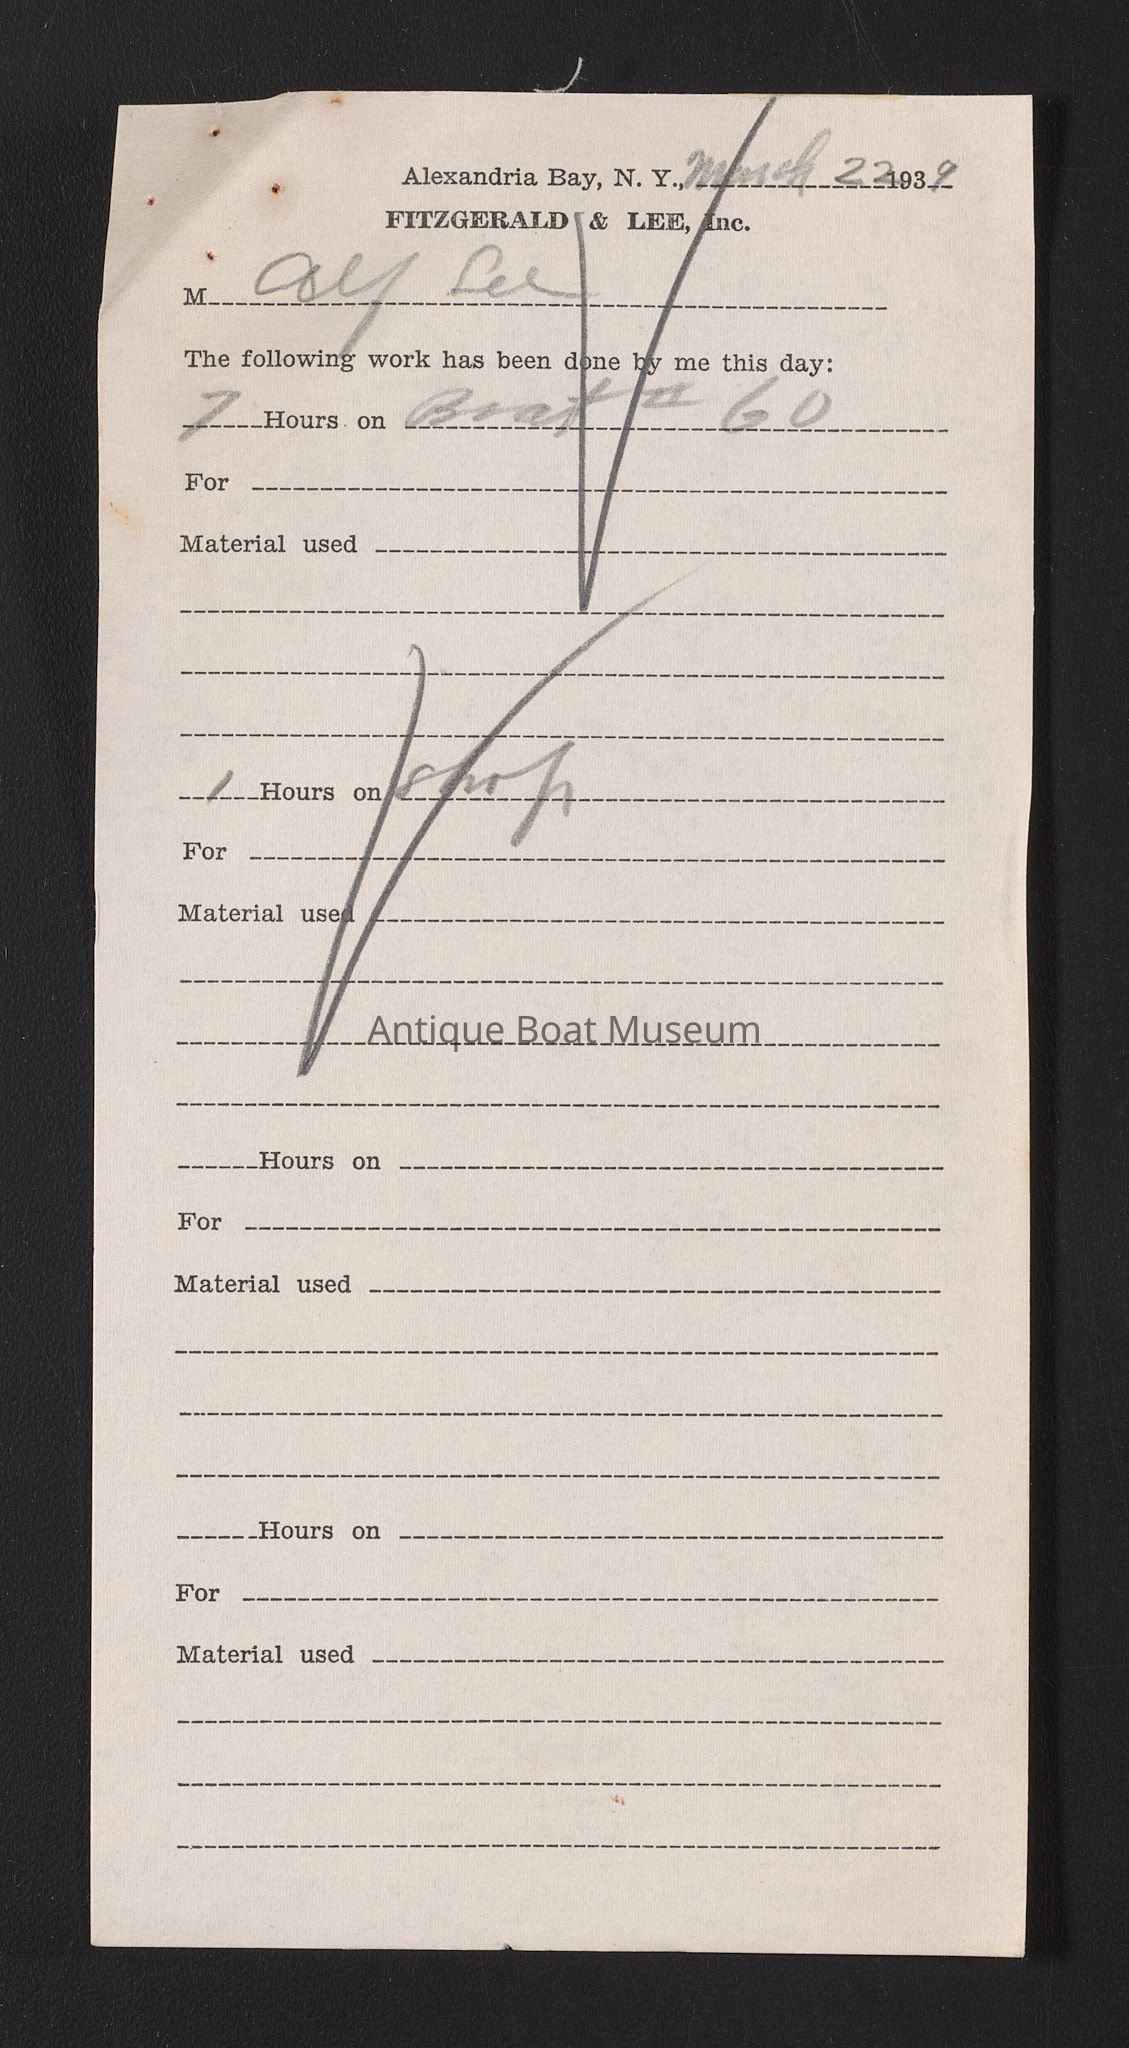 Alexandria Bay, N. Y., March 22 1939
FITZGERALD & LEE, Inc.
M Alf Lee
The following work has been done by me this day:
7 Hours on Boat # 60
For
Material used
1 Hours on shop
For
Material used
Antique Boat Museum
Hours on
For
Material used
Hours on
For
Material used